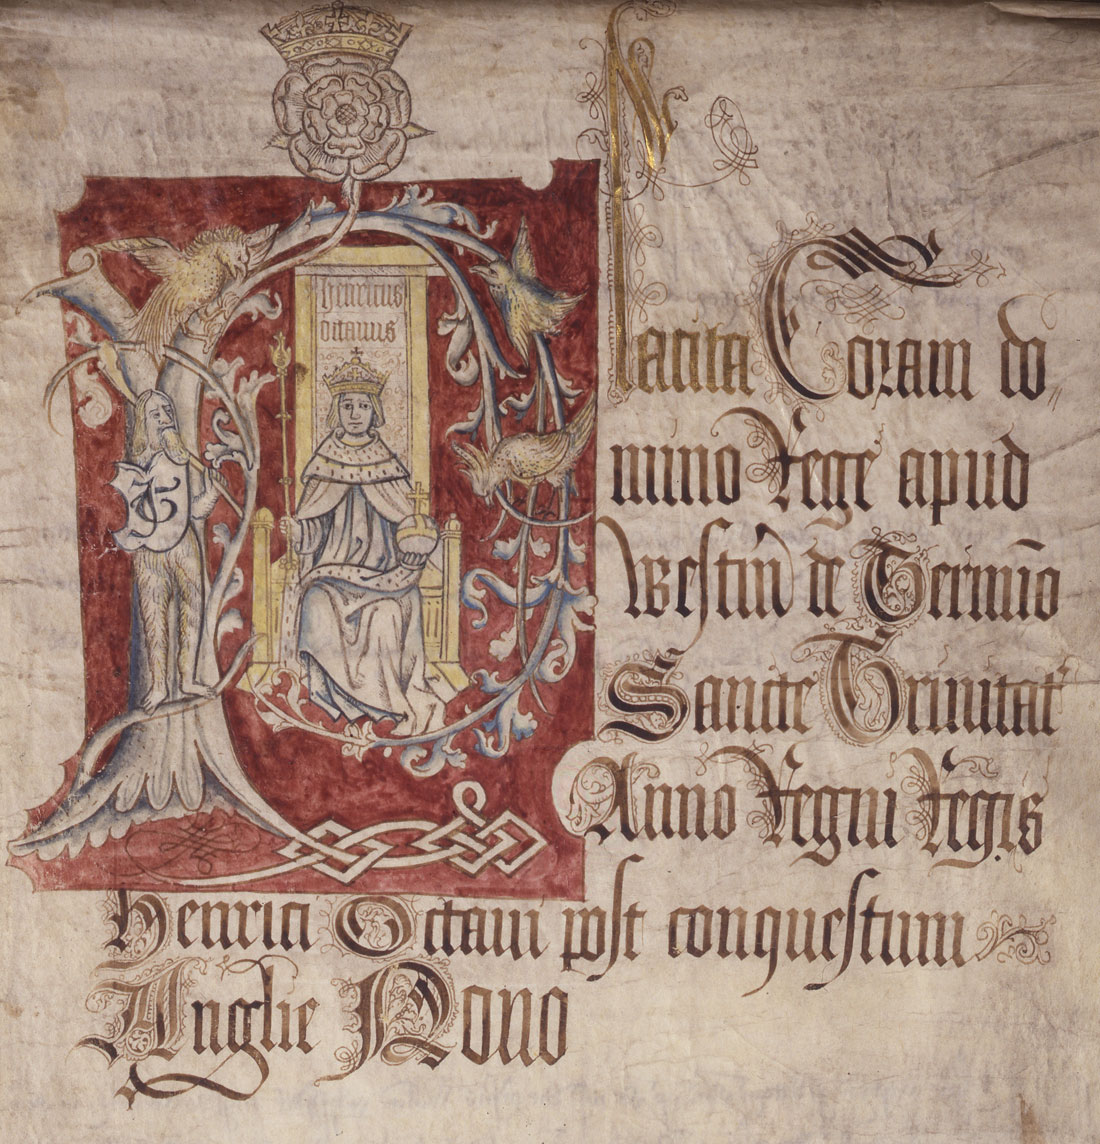 henricus
octauus
JS
Placita Coram do
mino Rege apud
Westm̄ de Termīo
Sancte Trinitat
Anno Regni Regis
Henrici Octaui post conquestum
Anglie Nono